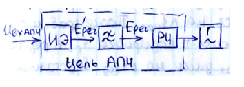 Uсч АПЧ ИЭ Eрег ≈ Eрег РЧ Г
Цепь АПЧ